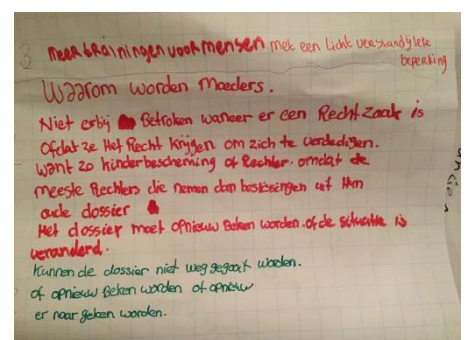 3 meer trainingen voor mensen met een licht verstandelijke
beperking
Waarom worden Moeders.
Niet erbij Betroken waneer er een Recht Zaak is
Ofdat ze Het Recht krijgen om zich te verdedigen.
Want zo kinderbescherming of Rechter. omdat de
meeste Rechters die nemen dan beslissingen uit Hun
oude dossier
Het dossier moet opnieuw Beken worden. of de situatie is
veranderd.
Kunnen de dossier niet weg gegooit worden.
of opnieuw Beken worden of opnieuw
er naar geleken worden.